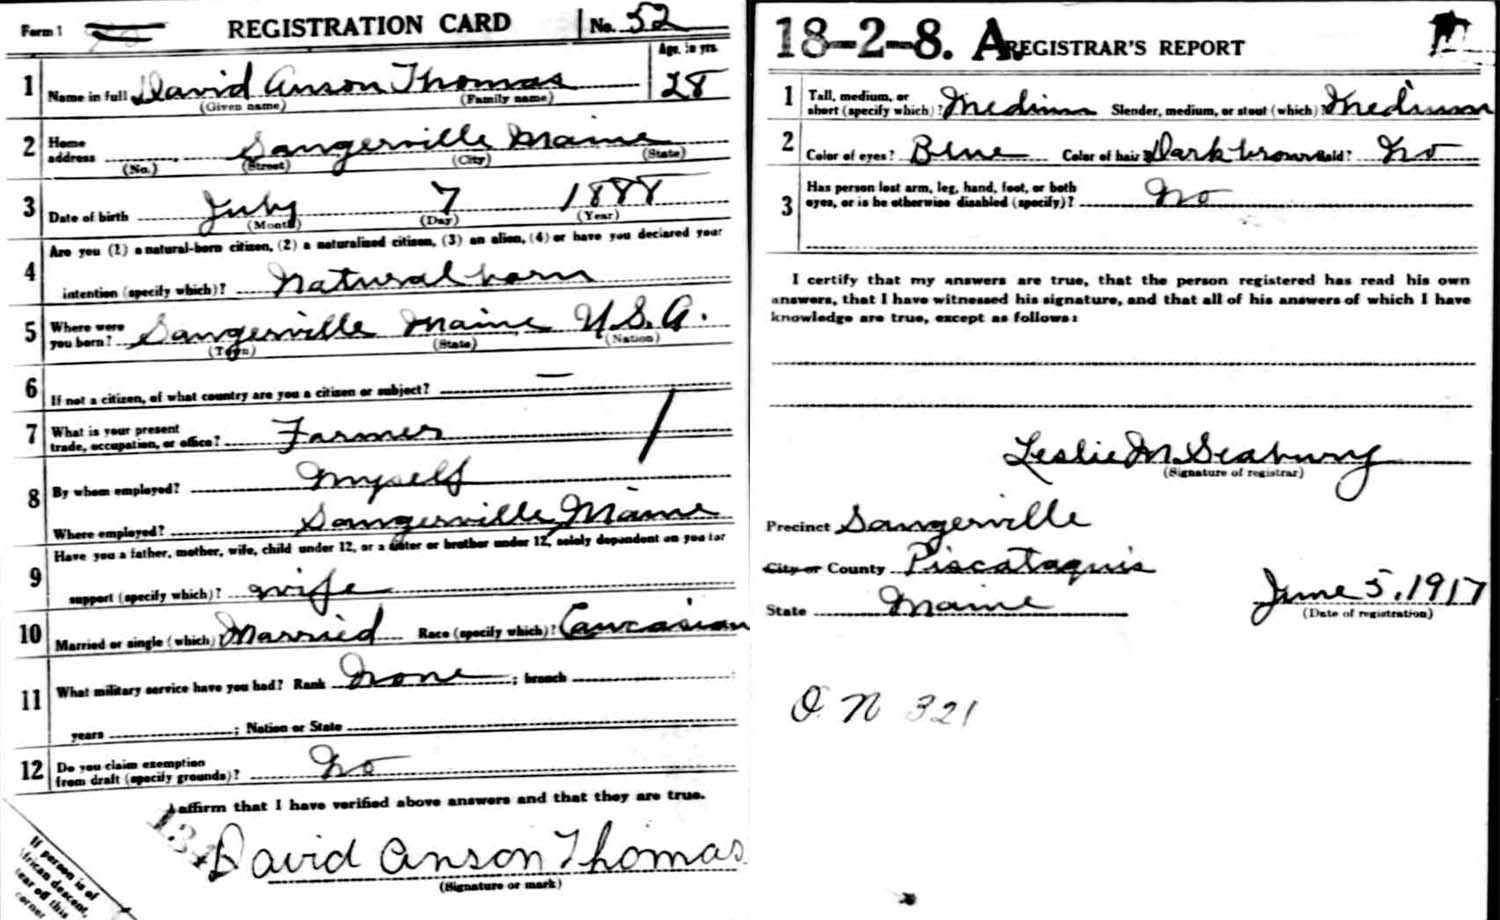 Form 1 REGISTRATION CARD No. 52
Age, in yrs.
1 Name in full David Anson Thomas 28
(Given name) (Family name)
2 Home address Sangerville Maine
(No.) (Street) (City) (State)
3 Date of birth July 7 1888
(Month) (Day) (Year)
Are you (1) a natural-born citizen, (2) a naturalized citizen, (3) an alien, (4) or have you declared your
4 intention (specify which)? Natural born
5 Where were you born? Sangerville Maine U.S.A.
(Town) (State) (Nation)
6 If not a citizen, of what country are you a citizen or subject? —
7 What is your present trade, occupation, or office? Farmer
8 By whom employed? Myself
Where employed? Sangerville, Maine
Have you a father, mother, wife, child under 12, or a sister or brother under 12, solely dependent on you for
9 support (specify which)? wife
10 Married or single (which) Married Race (specify which)? Caucasian
11 What military service have you had? Rank None ; branch
years ; Nation or State
12 Do you claim exemption from draft (specify grounds)? No
I affirm that I have verified above answers and that they are true.
134
David Anson Thomas
(Signature or mark)
If person is of
African descent,
tear off this
corner
18-2-8. A. REGISTRAR'S REPORT
1 Tall, medium, or short (specify which)? Medium Slender, medium, or stout (which)? Medium
2 Color of eyes? Blue Color of hair? Dark brown Bald? No
3 Has person lost arm, leg, hand, foot, or both eyes, or is he otherwise disabled (specify)? No
I certify that my answers are true, that the person registered has read his own
answers, that I have witnessed his signature, and that all of his answers of which I have
knowledge are true, except as follows:
Leslie M Seabury
(Signature of registrar)
Precinct Sangerville
City or County Piscataquis
State Maine June 5, 1917
(Date of registration)
O. N 321